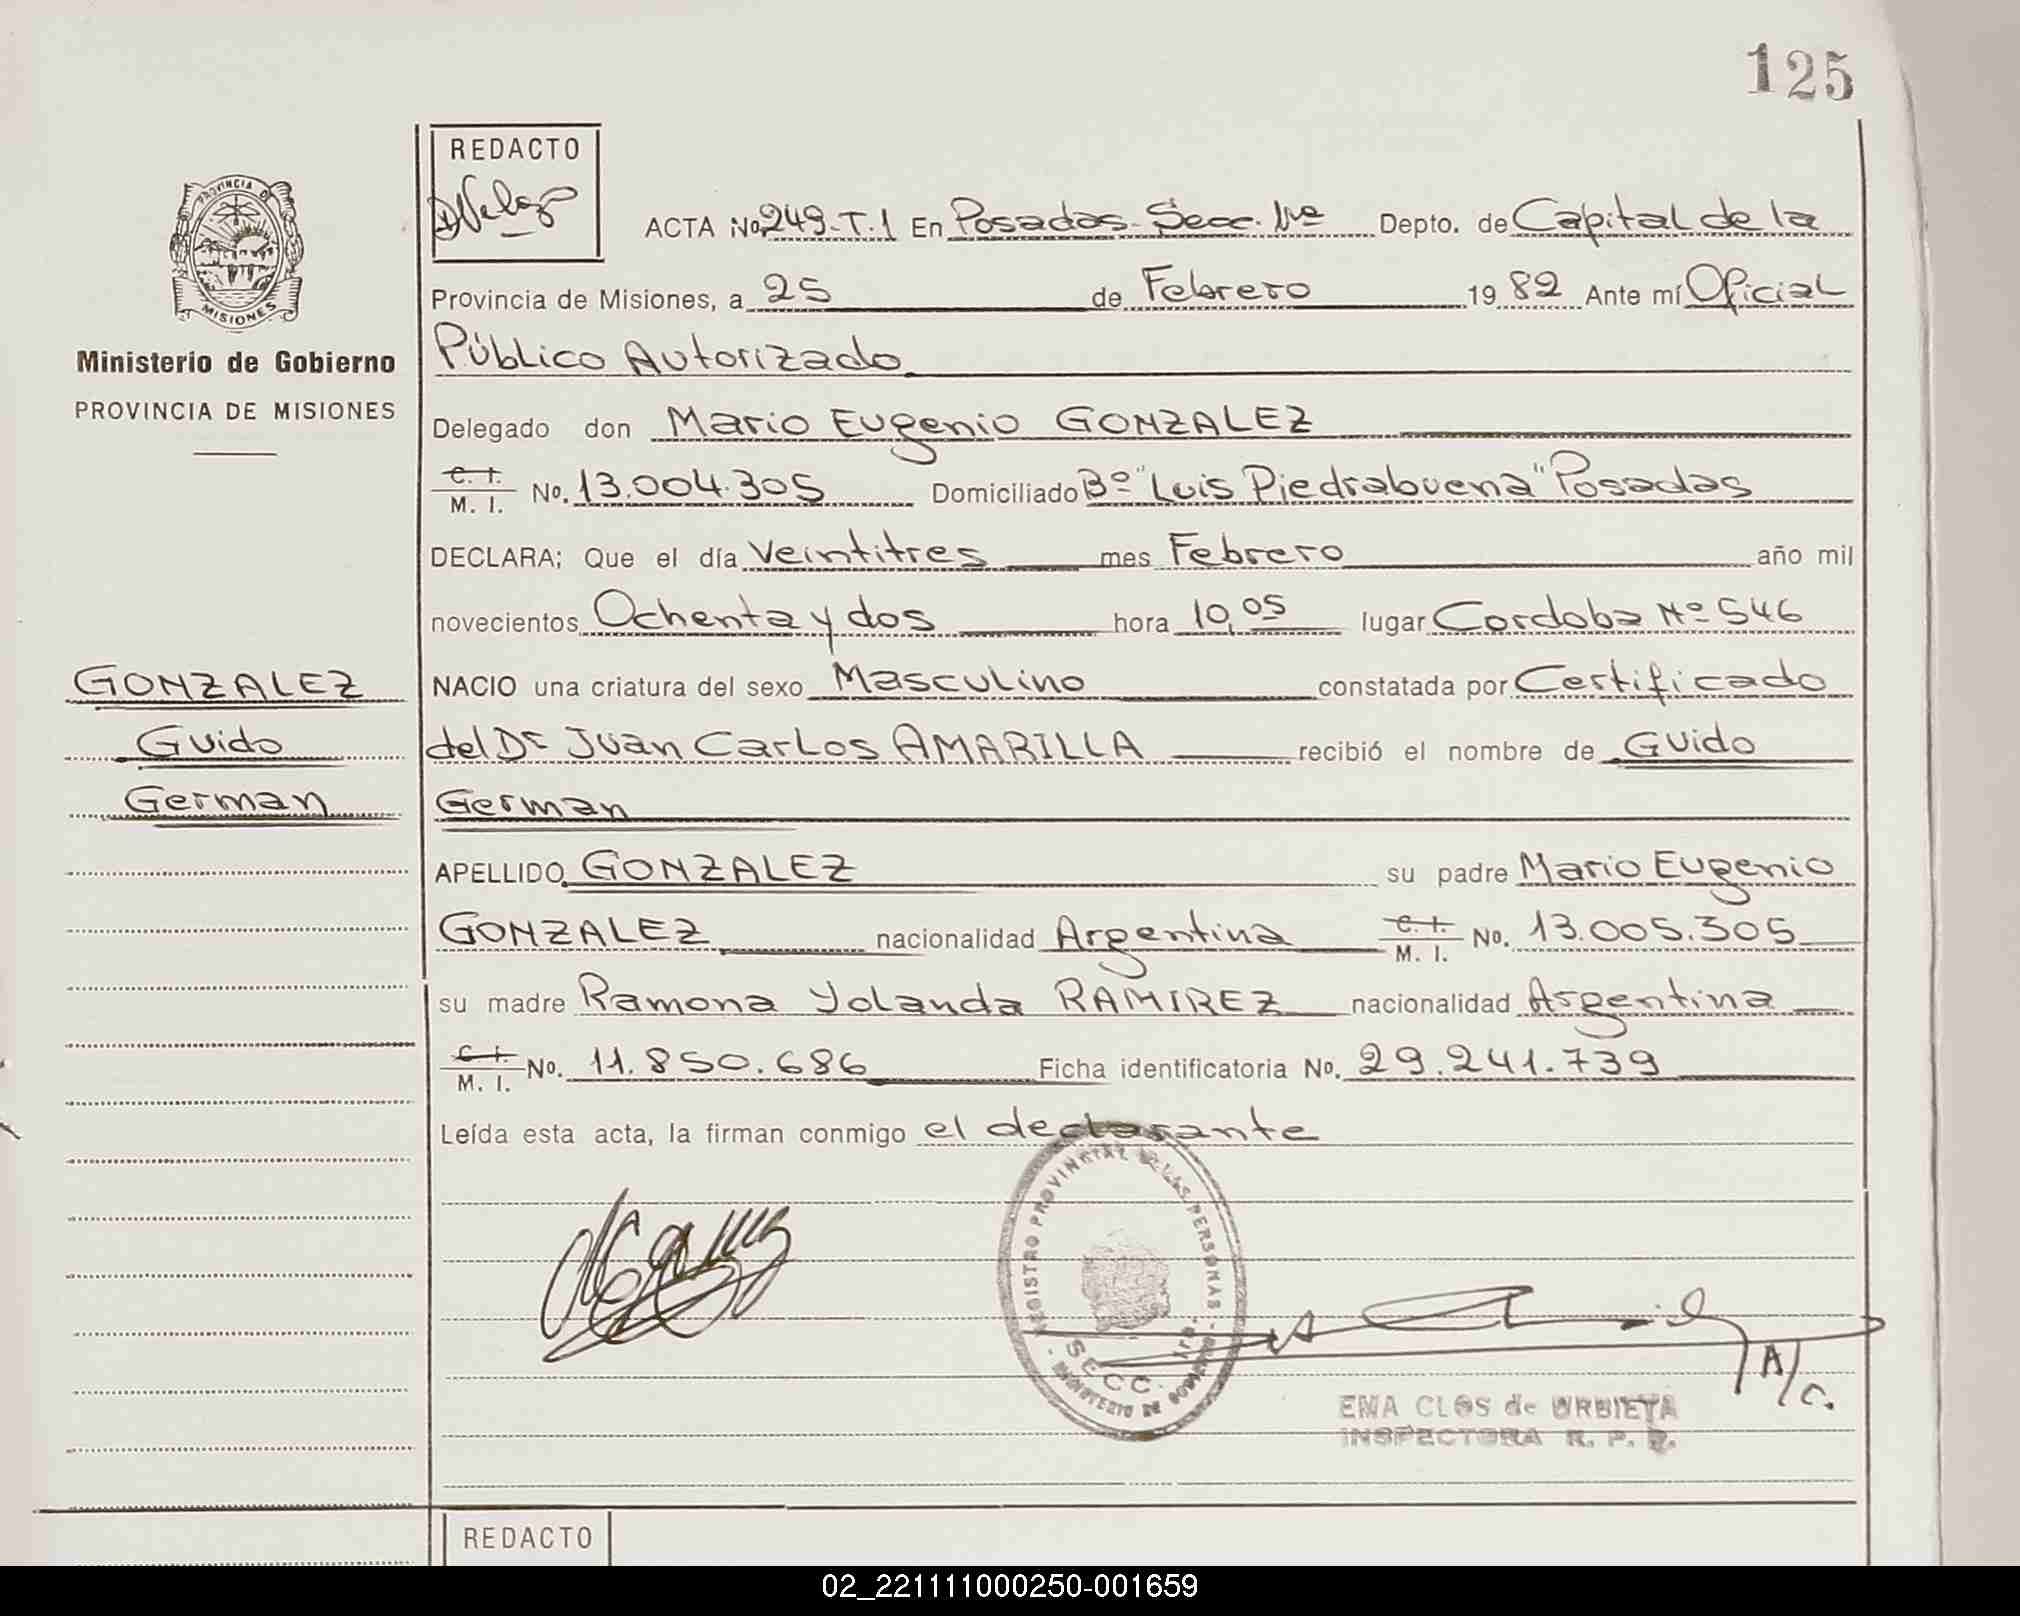 125
REDACTO
ACTA No. 249-T.1 En Posadas-Secc. 1ra Depto. de Capital de la
Provincia de Misiones, a 25 de Febrero 1982 Ante mí Oficial
Público Autorizado
PROVINCIA DE
MISIONES
Ministerio de Gobierno
PROVINCIA DE MISIONES
Delegado don Mario Eugenio GONZALEZ
C. I.
M. I. No. 13.004.305 Domiciliado Bº "Luis Piedrabuena" Posadas
DECLARA; Que el día veintitres mes Febrero año mil
novecientos Ochenta y dos hora 10,05 lugar Cordoba Nº 546
NACIO una criatura del sexo Masculino constatada por Certificado
del Dr Juan Carlos AMARILLA recibió el nombre de Guido
German
GONZALEZ
Guido
German
APELLIDO GONZALEZ su padre Mario Eugenio
GONZALEZ nacionalidad Argentina C. I. M. I. No. 13.005.305
su madre Ramona Yolanda RAMIREZ nacionalidad Argentina
C. I.
M. I. No. 11.850.686 Ficha identificatoria No. 29.241.739
Leída esta acta, la firman conmigo el declarante
REGISTRO PROVINCIAL DE LAS PERSONAS
SECC. 1ra.
- MINISTERIO DE GOBIERNO -
A/C.
EMA CLOS de URBIETA
INSPECTORA R. P. P.
REDACTO
02_221111000250-001659